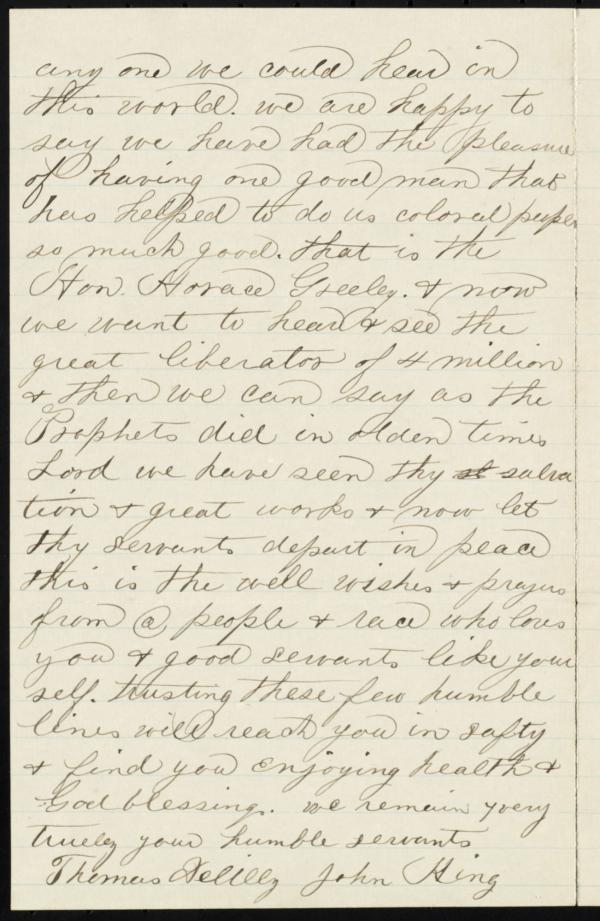 any one we could hear in
this world. we are happy to
say we have had the pleasure
of having one good man that
has helped to do us colored
so much good. that is the
Hon. Horace Greeley. & now
we want to hear & see the
great liberator of 4 million
& then we can say as the
Prophets did in olden times
Lord we have seen thy salva
tion & great works & now let
thy servants depart in peace
this is the well wishes & prayers
from a people & race who loves
you & good servants like your
self. trusting these few humble
lines will reach you in safty
& find you enjoying health &
God blessing. we remain yvery
truely your humble servants
Thomas John King